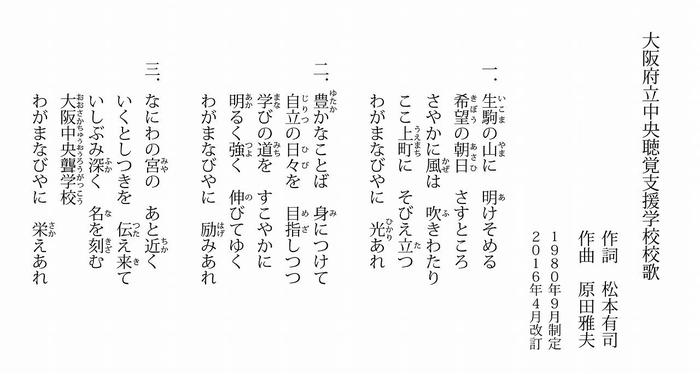 大阪府立中央聴覚支援学校校歌
作詞　松本有司
作曲　原田雅夫
1980年9月制定
2016年4月改訂
一．生駒の山に　明けそめる
希望の朝日　さすところ
さやかに風は　吹きわたり
ここ上町に　そびえ立つ
わがまなびやに　光あれ
二．豊かなことば　身につけて
自立の日々を　目指しつつ
学びの道を　すこやかに
明るく強く　伸びてゆく
わがまなびやに　励みあれ
三．なにわの宮の　あと近く
いくとしつきを　伝え来て
いしぶみ深く　名を刻む
大阪中央聾学校
わがまなびやに　栄えあれ